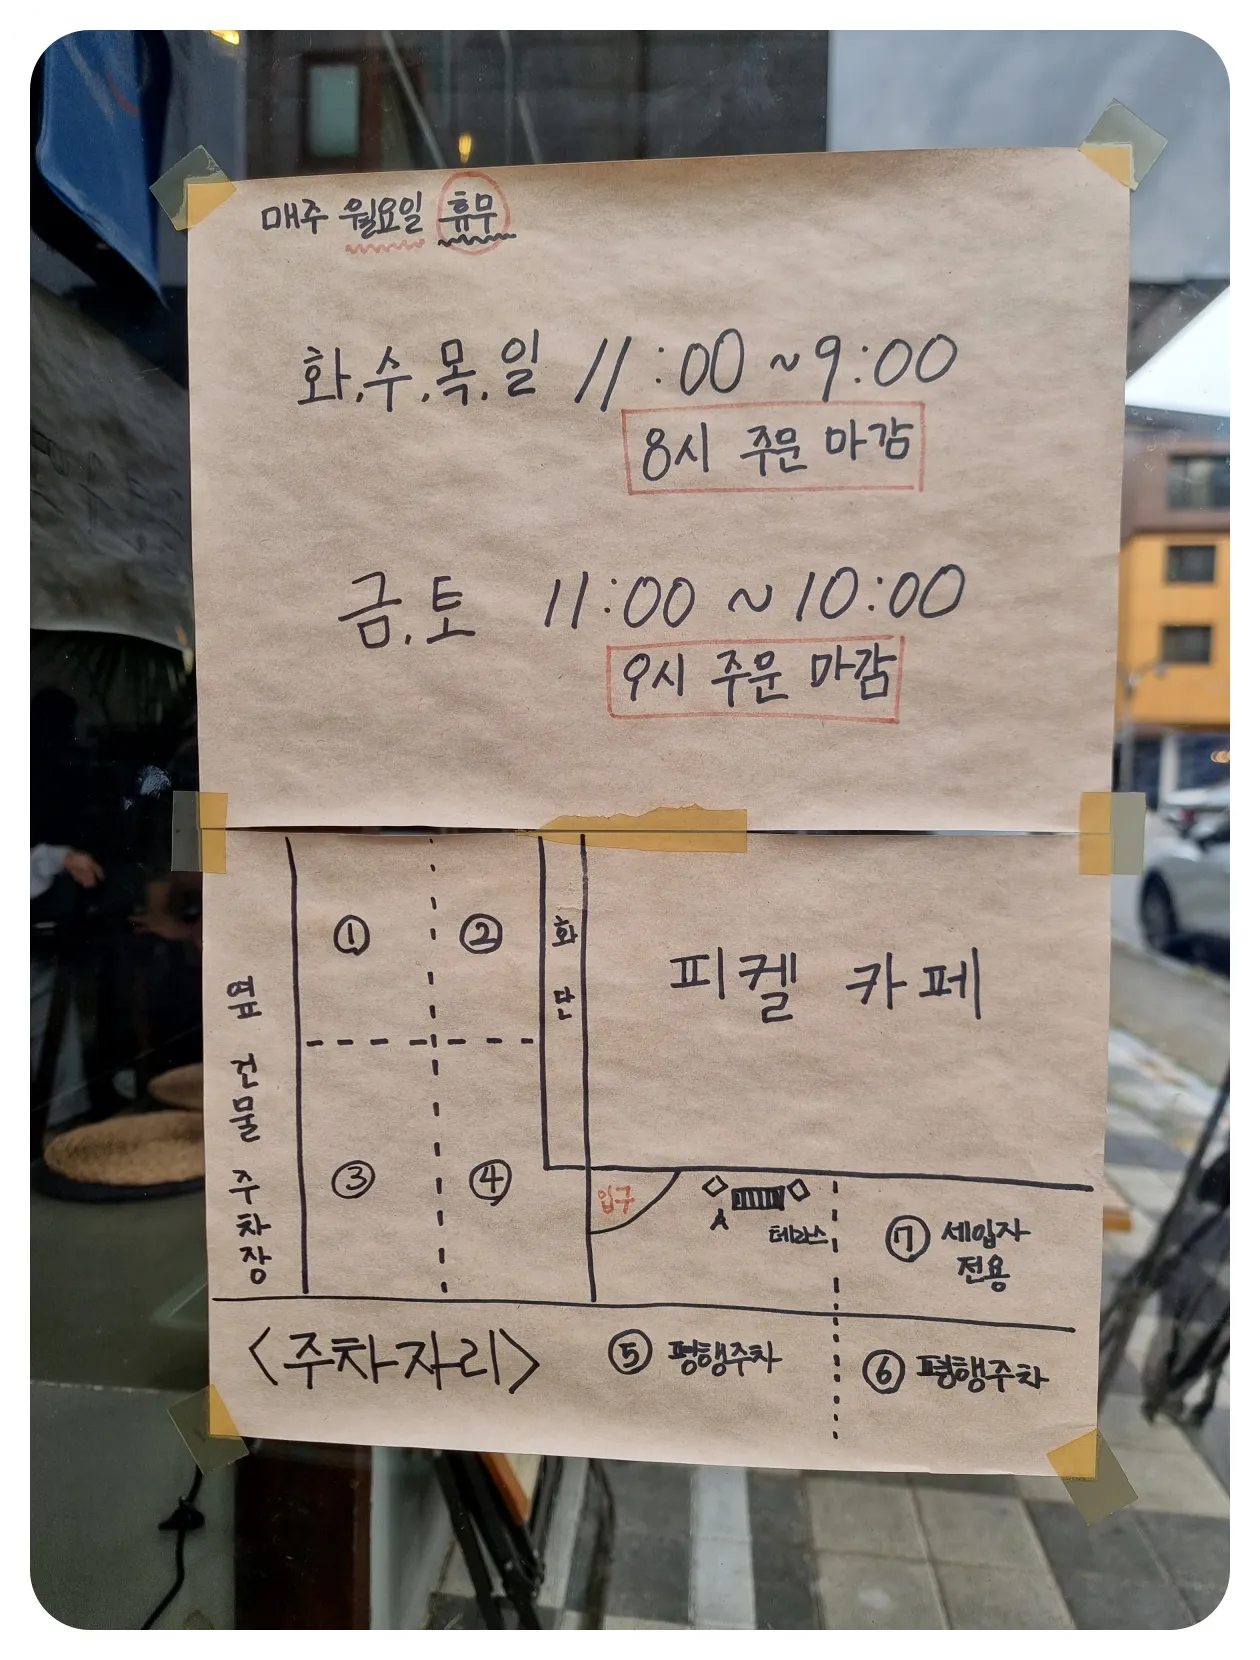 매주 월요일 휴무
화.수.목.일 11:00 ~ 9:00
8시 주문 마감
금.토 11:00 ~ 10:00
9시 주문 마감
① ②
화단
피켈 카페
옆 건물 주차장
③ ④
입구
A
테라스
⑦ 세입자
전용
<주차자리>
⑤ 평행주차
⑥ 평행주차